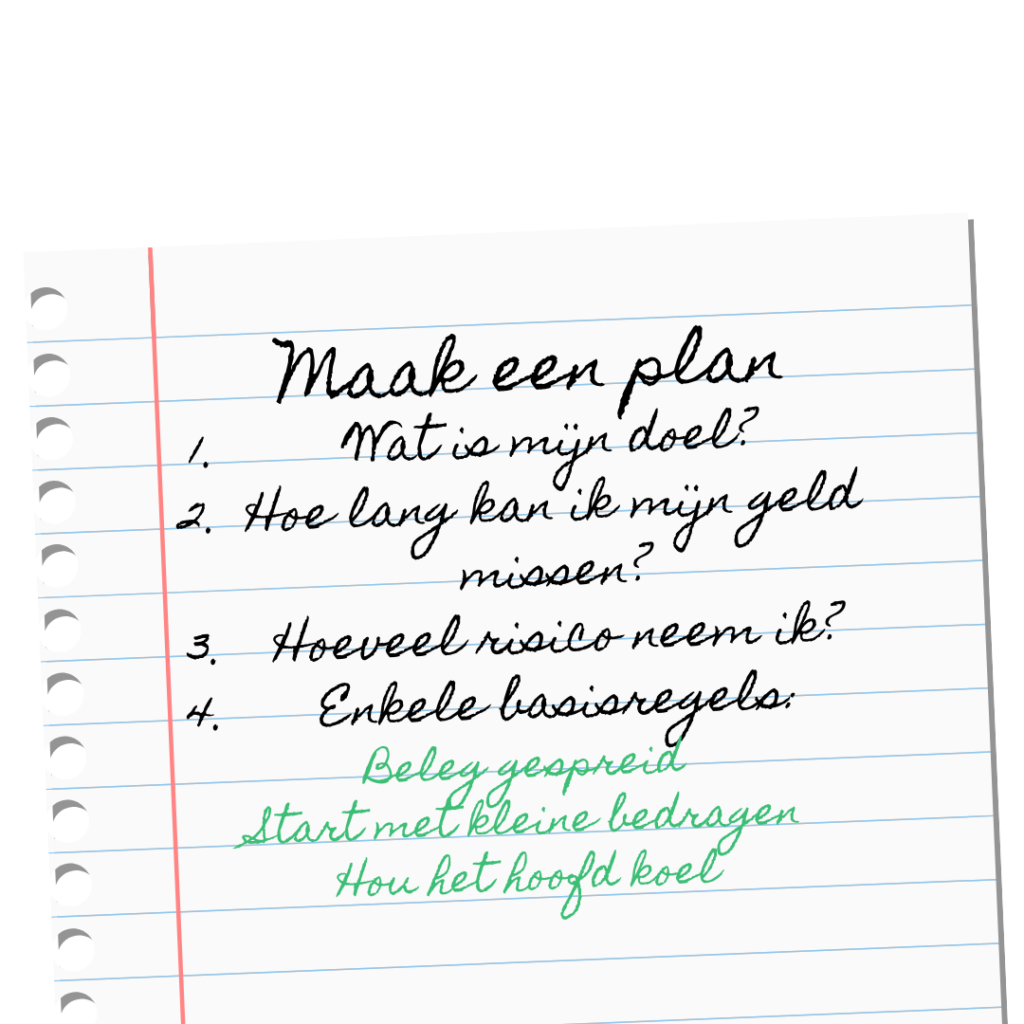 Maak een plan
1. Wat is mijn doel?
2. Hoe lang kan ik mijn geld
missen?
3. Hoeveel risico neem ik?
4. Enkele basisregels:
Beleg gespreid
Start met kleine bedragen
Hou het hoofd koel